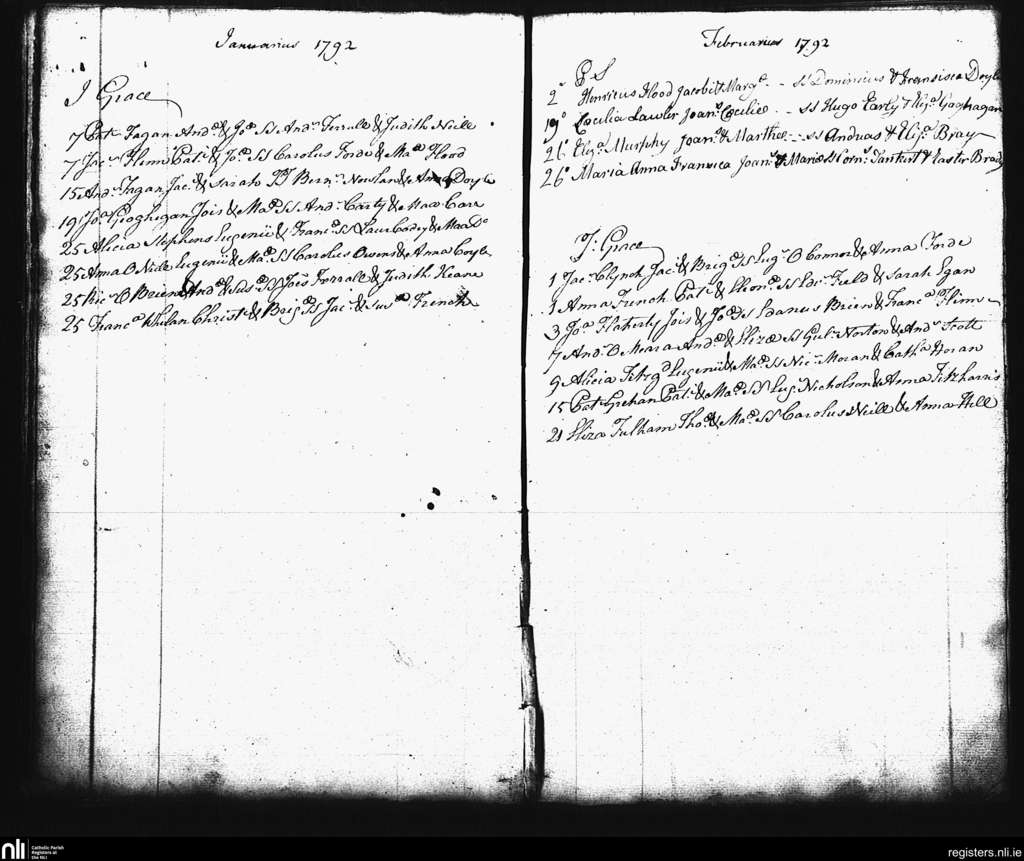 Januarius 1792
J Grace
7 Pat: Fagan And: & Jo: SS And: Ferrall & Judith Neille
7 Jac: Flinn Pat: & Jo: SS Carolus Forde & Ma: Flood
15 And: Fagan Jac: & Sarah SS Bern: Nowlan & Anna Doyle
19 Jo: Geoghegan Jois & Ma: SS And: Carty &
25 Alicia Stephens Eugenii & Franc: SS Laur: Codey & Ma: Do
25 Anna O Neile Eugenii & Ma: SS Carolus Owens & Anna Coyle
25 Ric: O Brien And: & Sus: SS Jois Forrall & Judith Keane
25 Franc: Whelan Christ: & Brig: SS Jac: & Sus: French
Februarius 1792
BS
2° Henricus Flood Jacobi & Marg: -- SS Dominicus & Francisca Doyle
19° Coecilia Lawler Joan: Coecilie -- SS Hugo Earty & Geoghagan
21° Eliz: Murphy Joan: & Marthae -- SS Andreas & Eliz: Bray
26° Maria Anna Joan: & Maria SS Corn: & Easter Brady
J: Grace
1 Jac: Clynch Jac: & Brig: SS Eug: O Connor & Anna Forde
1 Anna French Pat: & SS Edr: Field & Sarah Egan
3 Jo: Flaherty Jois & Jo: SS Brien & Franc: Flinn
7 And: O Meara And: & Eliza SS Gul: Norton & And: Scott
9 Alicia Fitzgd Eugenii & Ma: SS Nic: Moran & Cath: Horan
15 Pat: Grehan Pat: & Ma: SS Eug: Nicholson & Anna Fitzharris
21 Eliza Fulham Tho: & Ma: SS Carolus Neill & Anna Hill
nli
Catholic Parish
Registers at
the NLI
registers.nli.ie